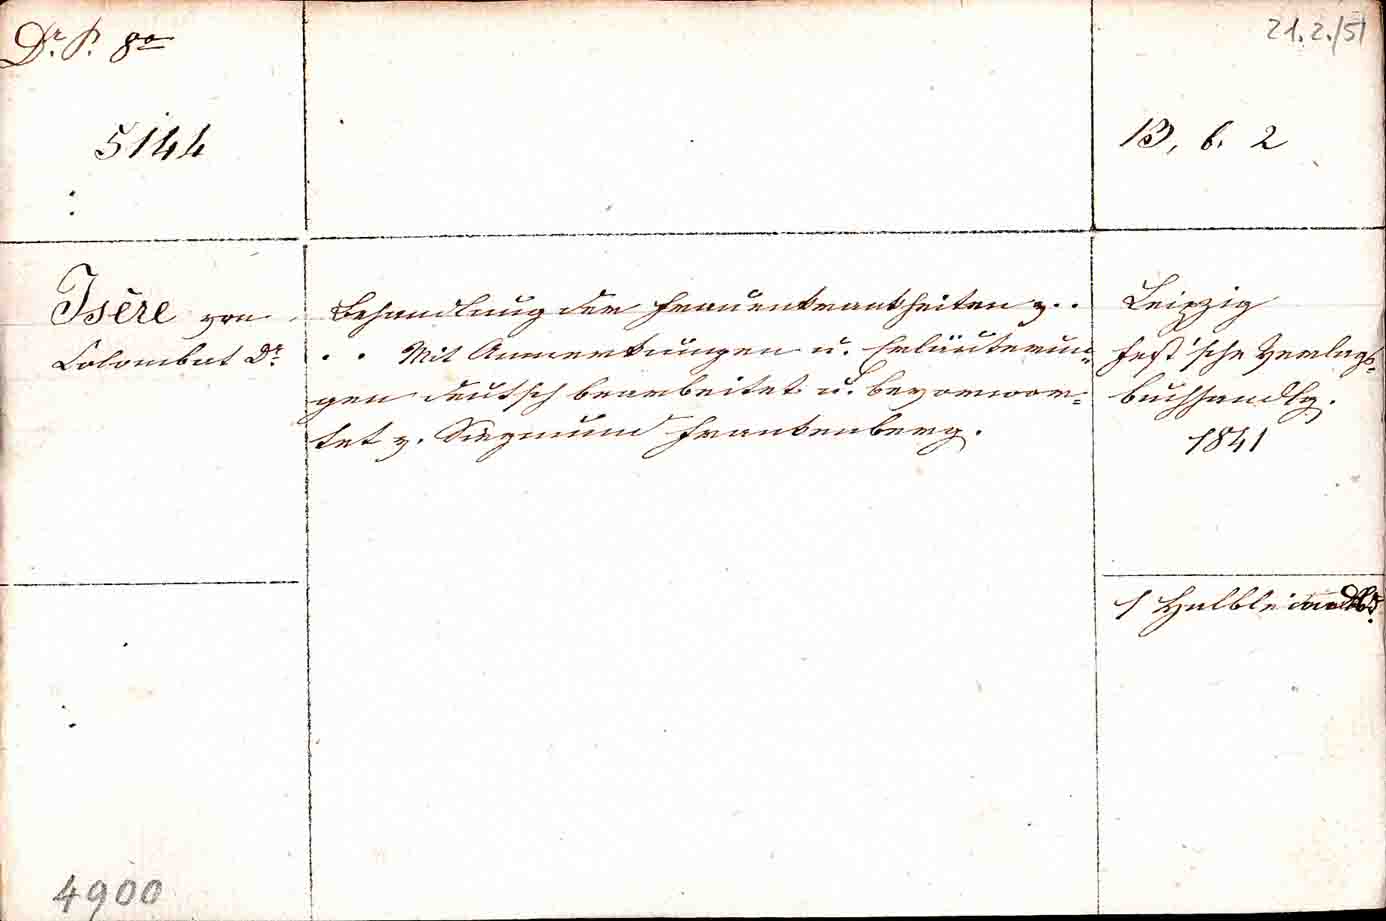 Dr. P. 8o
21. 2./51
5144
13, 6. 2
Isère von
Colombat Dr.
Behandlung der Frauenkrankheiten v. .
. . Mit Anmerkungen u. Erläuterun=
gen deutsch bearbeitet u. bevorwor=
tet v. Siegmund Frankenberg.
Leipzig
Fest'sche Verlags=
buchhandlg.
1841
1 Halbleinwdbd.
4900